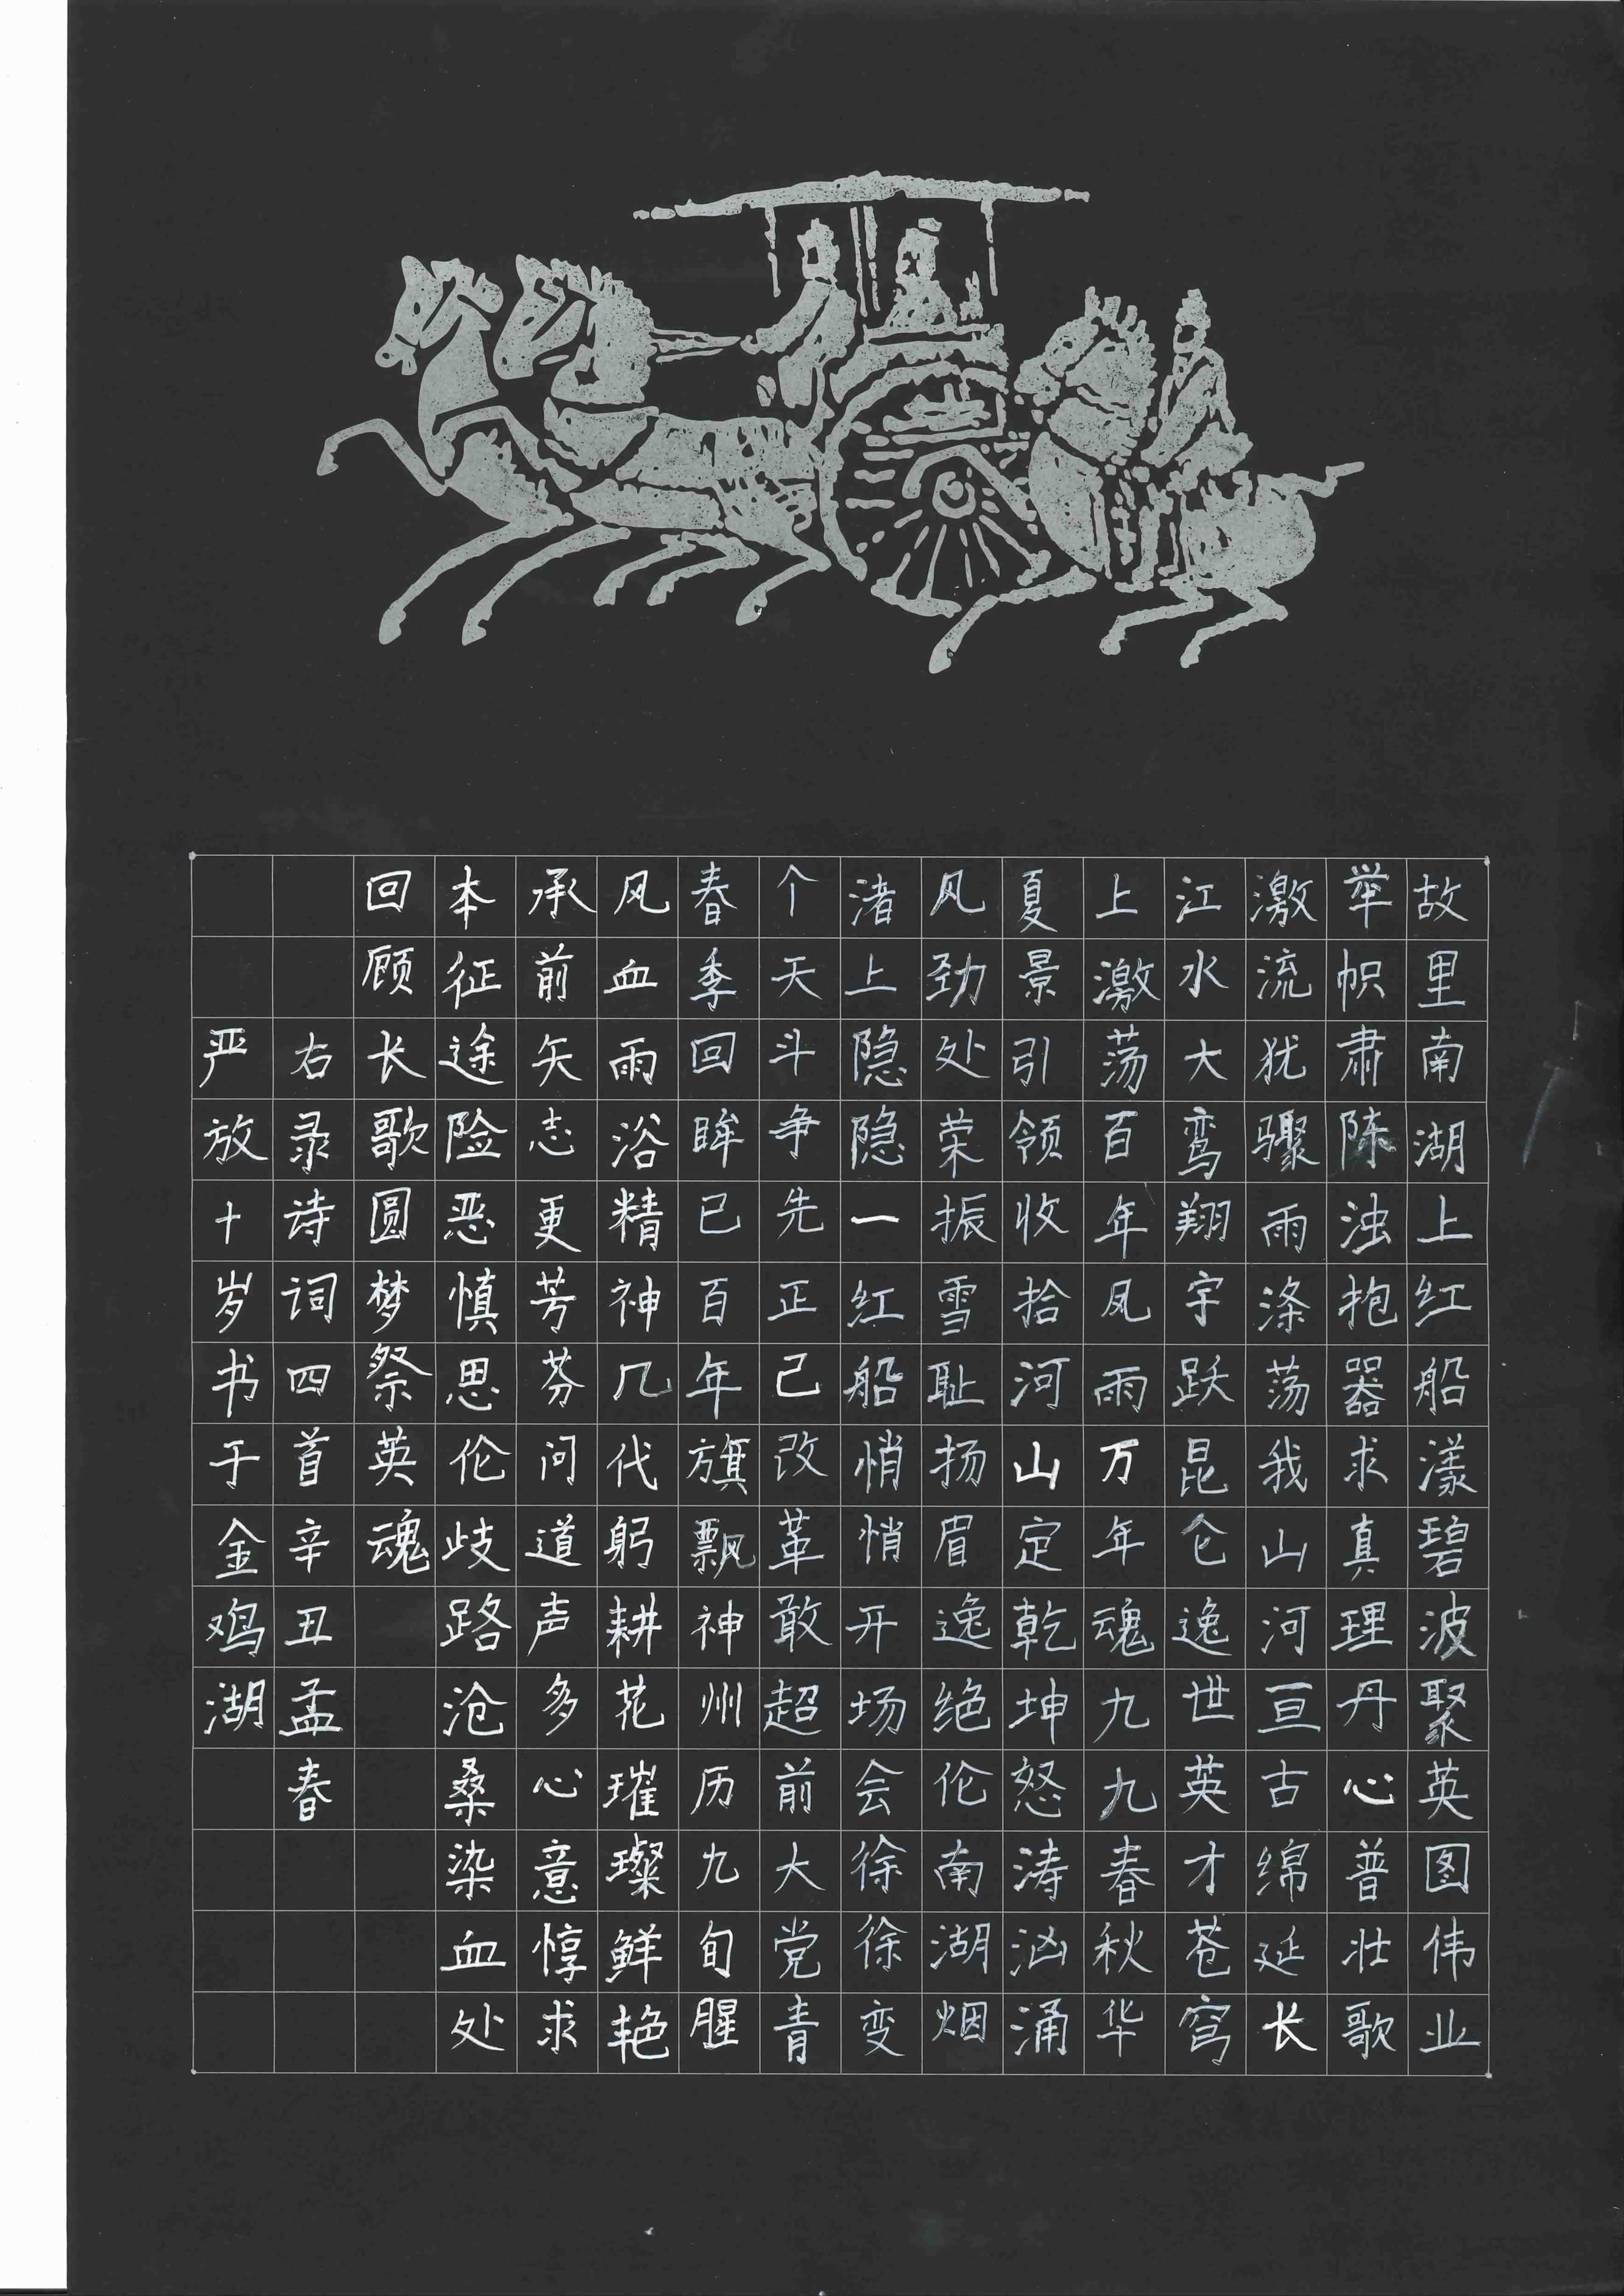 故里南湖上红船漾碧波聚英图伟业
举帜肃陈浊抱器求真理丹心普壮歌
激流犹骤雨涤荡我山河亘古绵延长
江水大鸾翔宇跃昆仑逸世英才苍穹
上激荡百年风雨万年魂九九春秋华
夏景引领收拾河山定乾坤怒涛汹涌
风劲处荣振雪耻扬眉逸绝伦南湖烟
渚上隐隐一红船悄悄开场会徐徐变
个天斗争先正己改革敢超前大党青
春季回眸已百年旗飘神州历九旬腥
风血雨浴精神几代躬耕花璀璨鲜艳
承前矢志更芳芬问道声多心意惇求
本征途险恶慎思伦歧路沧桑染血处
回顾长歌圆梦祭英魂
右录诗词四首辛丑孟春
严放十岁书于金鸡湖